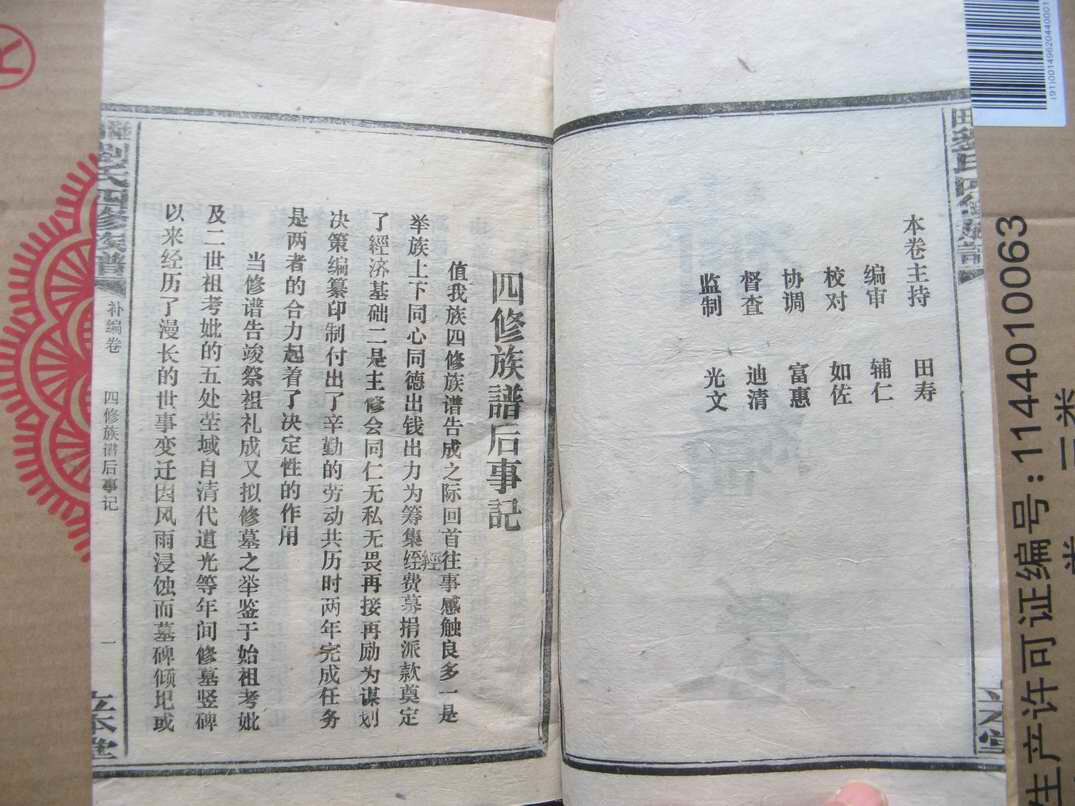 本卷主持 田寿
编审 辅仁
校对 如佐
协调 富惠
督查 迪清
监制 光文
四修族譜后事记
值我族四修族谱告成之际回首往事感触良多一是
举族上下同心同德出钱出力为筹集经费募捐派款奠定
經
了經济基础二是主修会同仁无私无畏再接再励为谋划
决策编纂印制付出了辛勤的劳动共历时两年完成任务
是两者的合力起着了决定性的作用
当修谱告竣祭祖礼成又拟修墓之举鉴于始祖考妣
及二世祖考妣的五处茔域自清代道光等年间修墓竖碑
以来经历了漫长的世事变迁因风雨浸蚀而墓碑倾圯或
劉氏四修族譜
补编卷
四修族谱后事记
一
立本堂
(91)00149620440001
生产许可证编号:1144010063